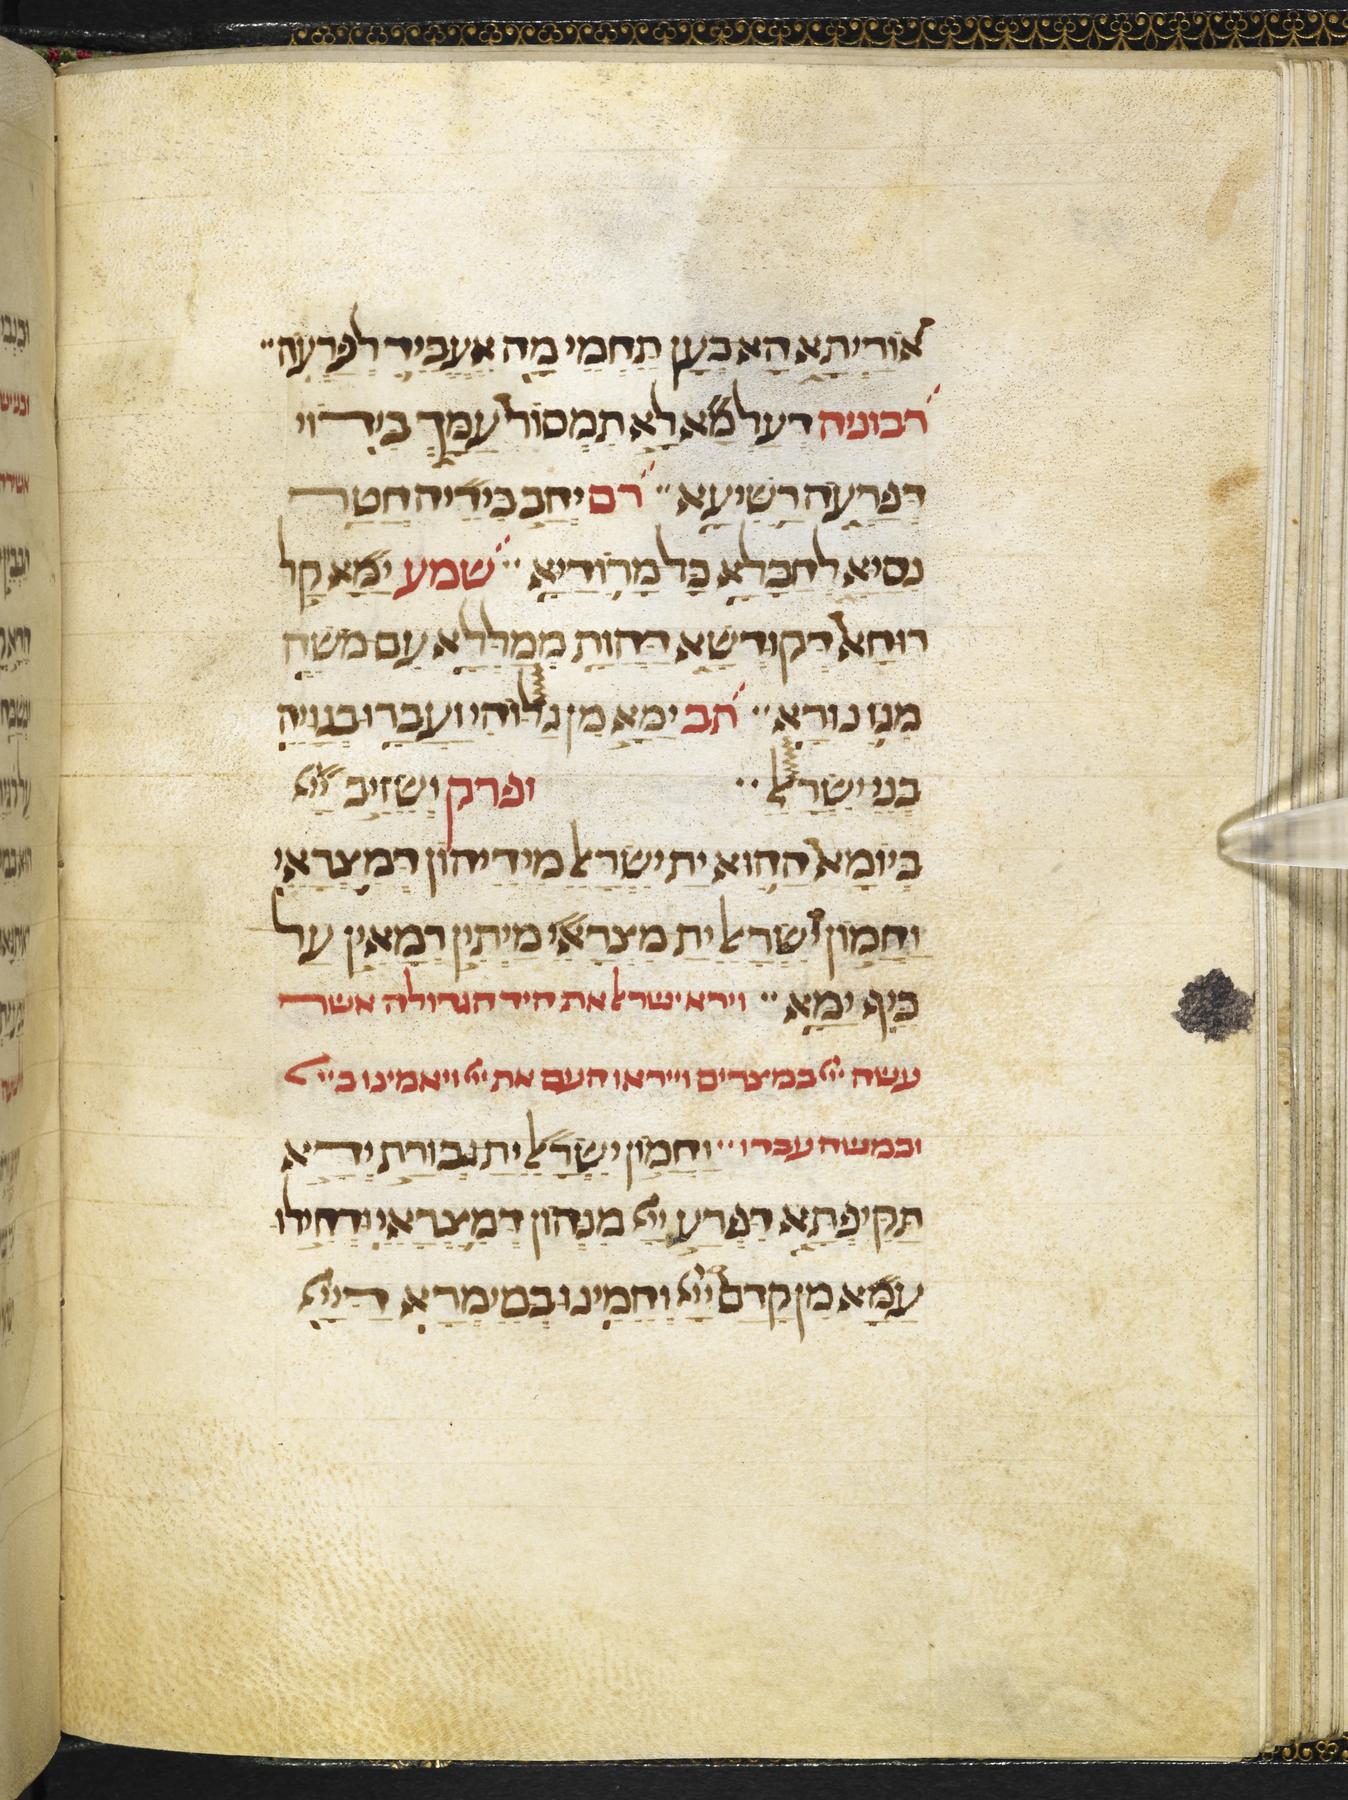 אוֹרַיְתָא הָא כְעַן תֶּחֱמֵי מָה אַעֲבֵיד לְפַרְעֹה··
רבוניה דְעָלְמָא לָא תִמְסוֹר עַמָךְ בִּידוֹי
דְּפַרְעֹה רַשִׁיעָא·· רם יְהַב בִּידֵיהּ חֻטְרָ
נִסַיָא לְחַבָּלָא כָּל מָרוֹדַיָא·· שמע יַמָא קַל
רוּחָא דְקוּדְשָׁא דַּהֲוַת מְמַלְּלָא עִם מֹשֶׁה
מִגּוֹ נוּרָא·· תב יַמָא מִן גַּלּוֹהִי וַעֲבַרוּ בְגַוֵּיהּ
בְּנֵי יִשְׂרָאֵל·· ופרק וְשֵׁזִיב יְיָ
בְּיוֹמָא הַהוּא יַת יִשְׂרָאֵל מִידֵיהוֹן דְּמִצְרָאֵי
וַחֲמוֹן יִשְׂרָאֵל יַת מִצְרָאֵי מִיתִין רְמָאִין עַל
כֵּיף יַמָּא·· וירא ישראל את היד הגדולה אשר
עשה ייי במצרים וייראו העם את ייי ויאמינו בייי
ובמשה עבדו·· וַחֲמוֹן יִשְׂרָאֵל יַת גְּבוּרַת יְדָא
תַּקִּיפְתָּא דִּפְרַע יְיָ מִנְהוֹן דְּמִצְרָאֵי וּדְחִילוּ
עַמָּא מִן קֳדָם יְיָ וְהֵמִינוּ בְּמֵימְרָא דַיְיָ